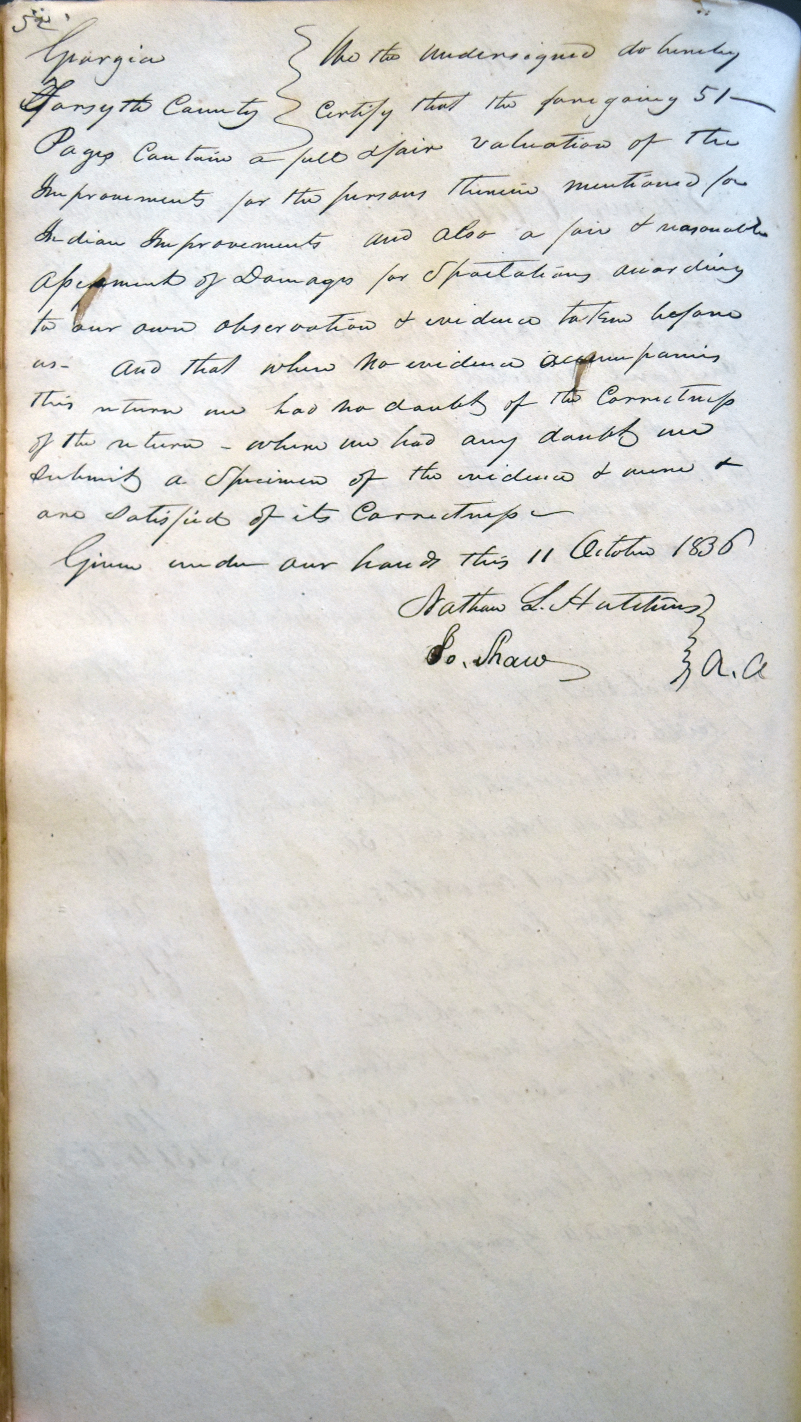 52
Georgia } We the undersigned do hereby
Forsyth County } Certify that the foregoing 51 —
Pages Contain a full & fair valuation of the
Improvements for the persons therein mentioned for
Indian Improvements and also a fair & reasonable
assessment of Damages for Spoliations according
to our own observation & evidence taken before
us - And that where no evidence accompanies
this return we had no doubt of the Correctness
of the return - where we had any doubt we
submit a Specimen of the evidence & were &
are satisfied of its Correctness —
Given under our hands this 11 October 1836
Nathan L. Hutchins }
Jo. Shaw } A. A